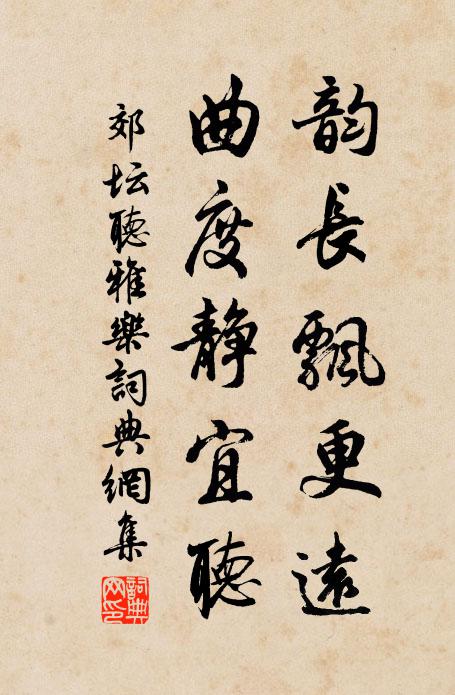 韵長飄更遠
曲度静宜聽
郊坛聽雅樂詞典網集
詞典网印